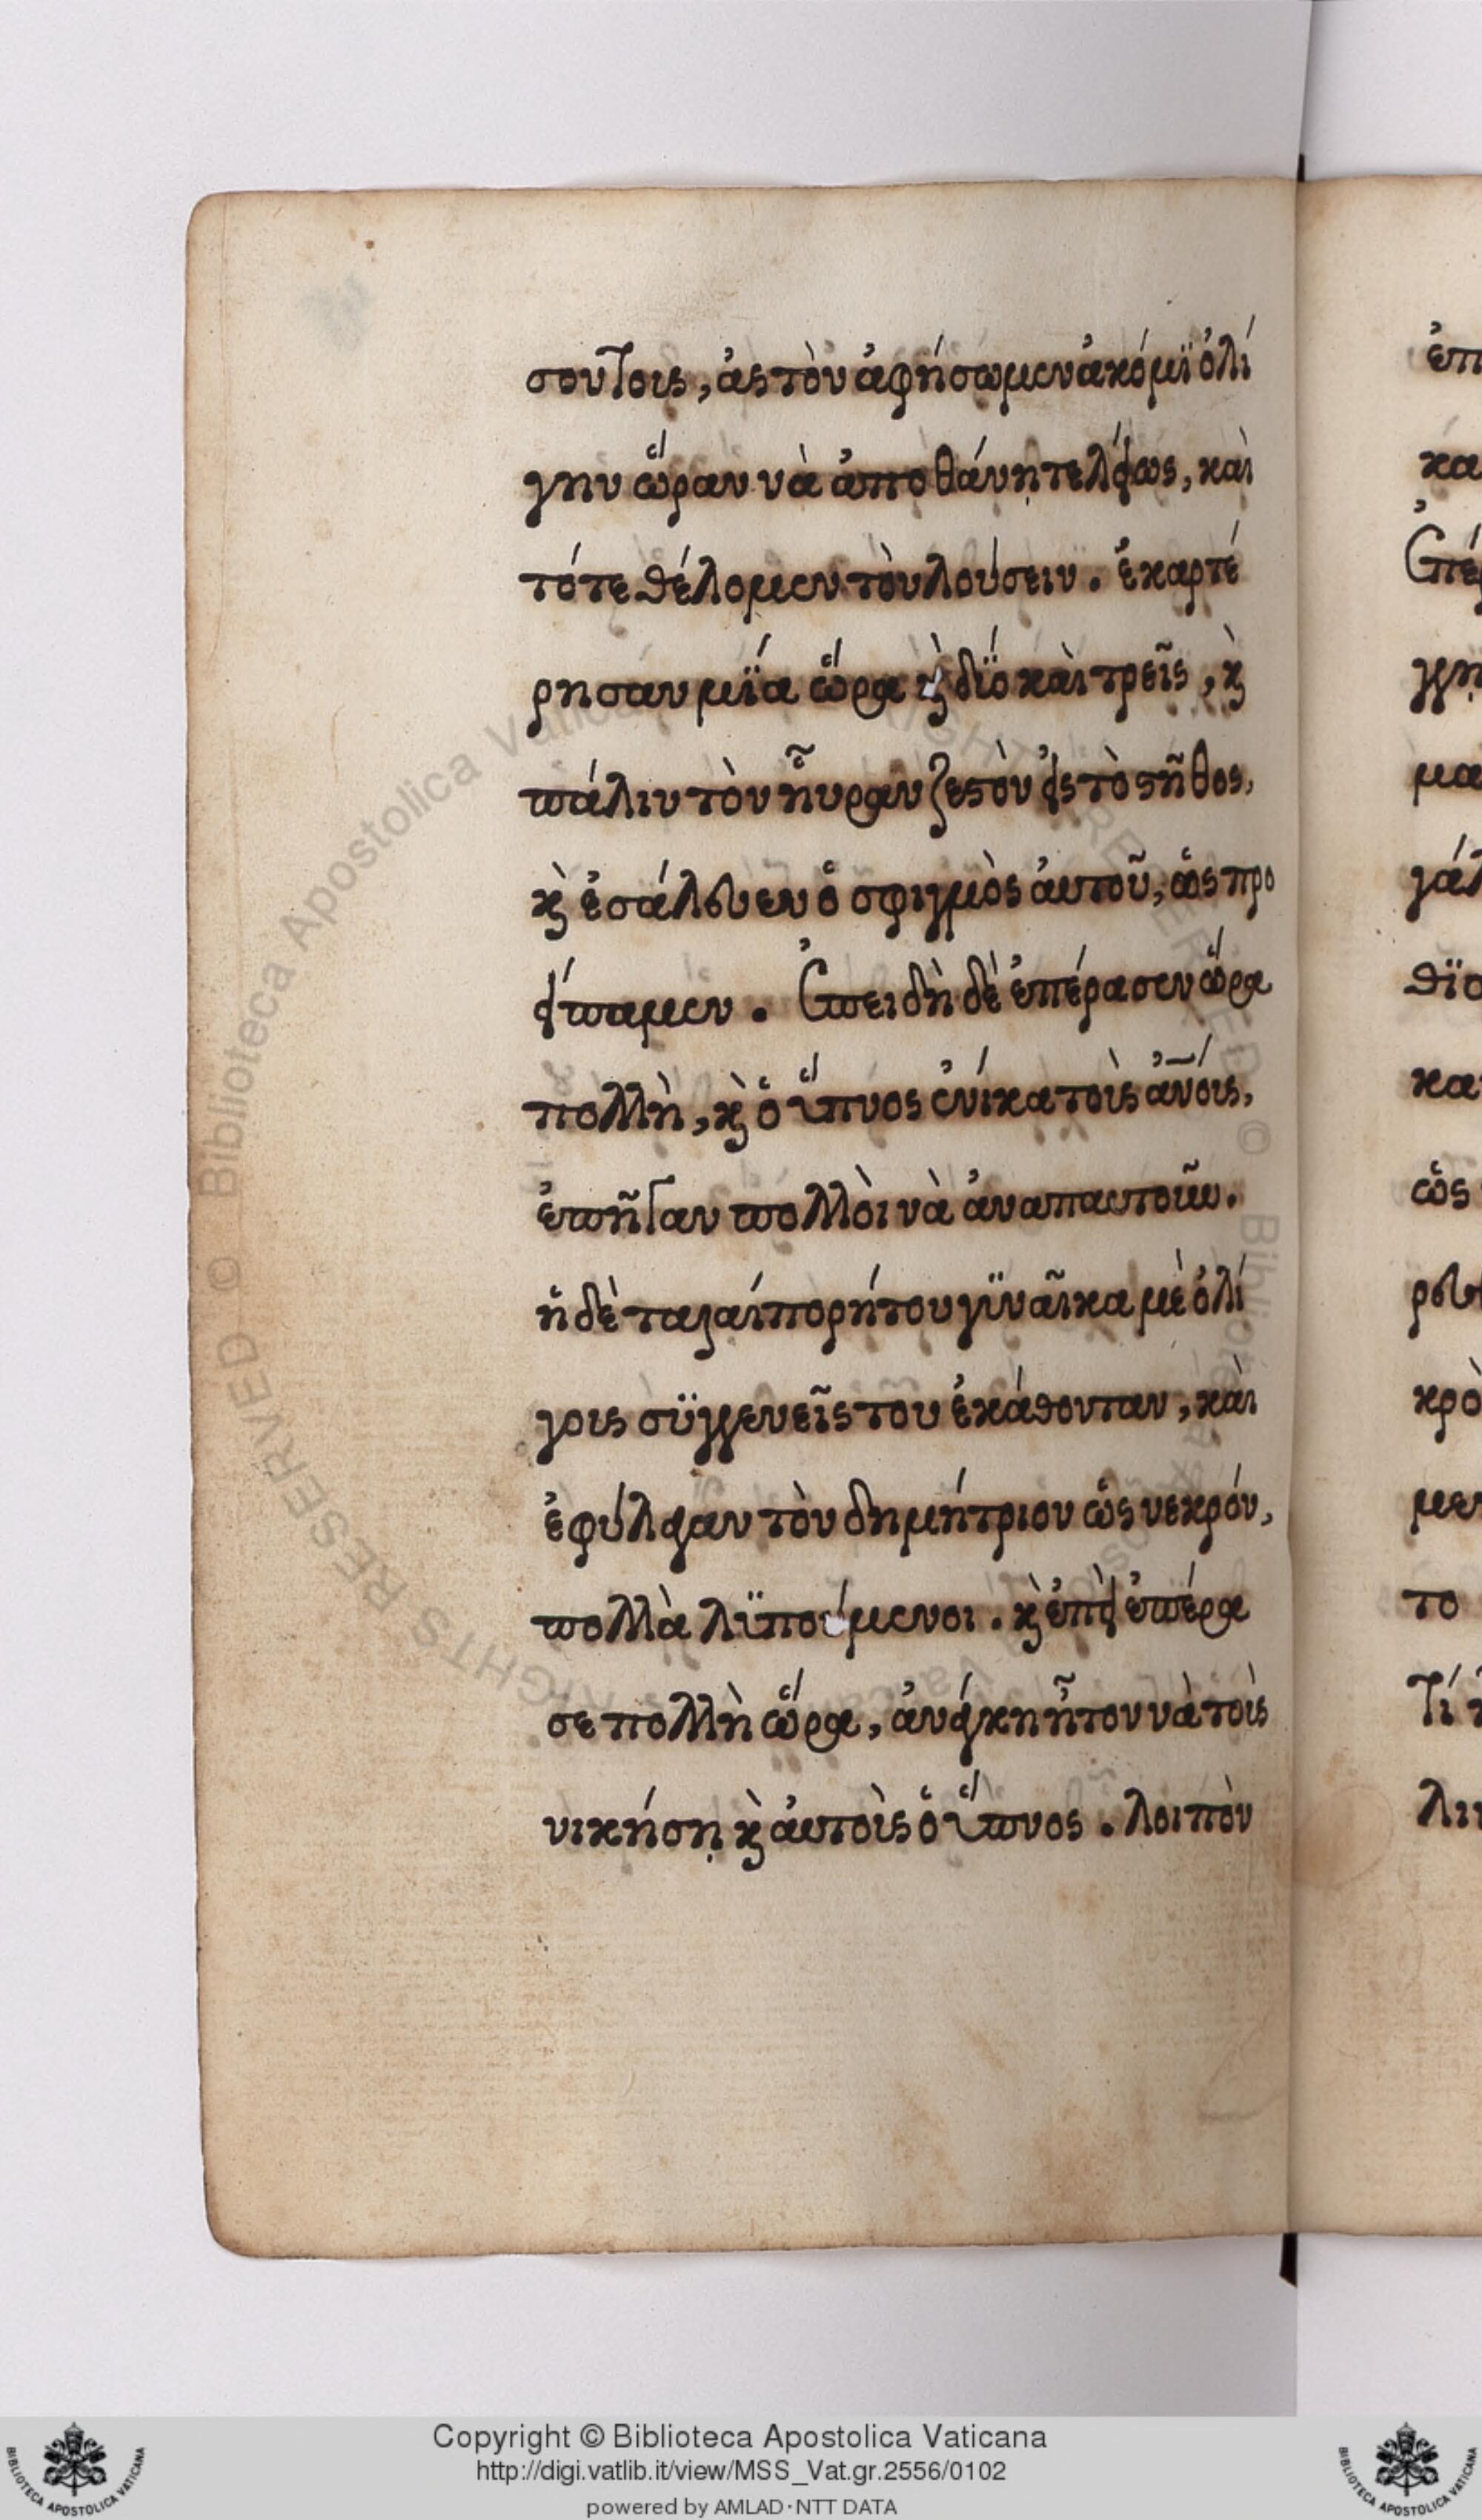 σουτοις, ἀς τὸν ἀφήσωμεν ἀκόμϊ ὀλί
γην ὥραν νὰ ἀποθάνῃ τελείως, καὶ
τότε θέλομεν τὸν λούσειν. ἐκαρτέ
ρησαν μϊάα ὥρα κ̀ δϊό καὶ τρεῖς, κ̀
πάλιν τὸν ηὗραν ζεστὸν εἰς τὸ στῆθος,
κ̀ ἐσάλευεν ὁ σφιγμὸς ἀυτοῦ, ὡς προ
είπαμεν. Ἐπειδὴ δὲ ἐπέρασεν ὥρα
πολλὴ, κ̀ ὁ ὕπνος ἐνίκα τοὶς ἀν̅οις,
ἐπῆγαν πολλὸι νὰ ἀναπαυτοῦν.
ἡ δὲ ταλαίπορή του γϋναῖκα μὲ ὀλί
γοις σϋγγενεῖς του ἐκάθονταν, κὰι
ἐφύλαγαν τὸν δημήτριον ὡς νεκρόν,
πολλὰ λϊπούμενοι. κ̀ ἐπεὶ ἐπέρα
σε πολλὴ ὥρα, ἀνάγκη ἦτον νὰ τοὶς
νικήσῃ κ̀ ἀυτοὶς ὁ ὕπνος. λοιπὸν
Copyright © Biblioteca Apostolica Vaticana
http://digi.vatlib.it/view/MSS_Vat.gr.2556/0102
powered by AMLAD·NTT DATA